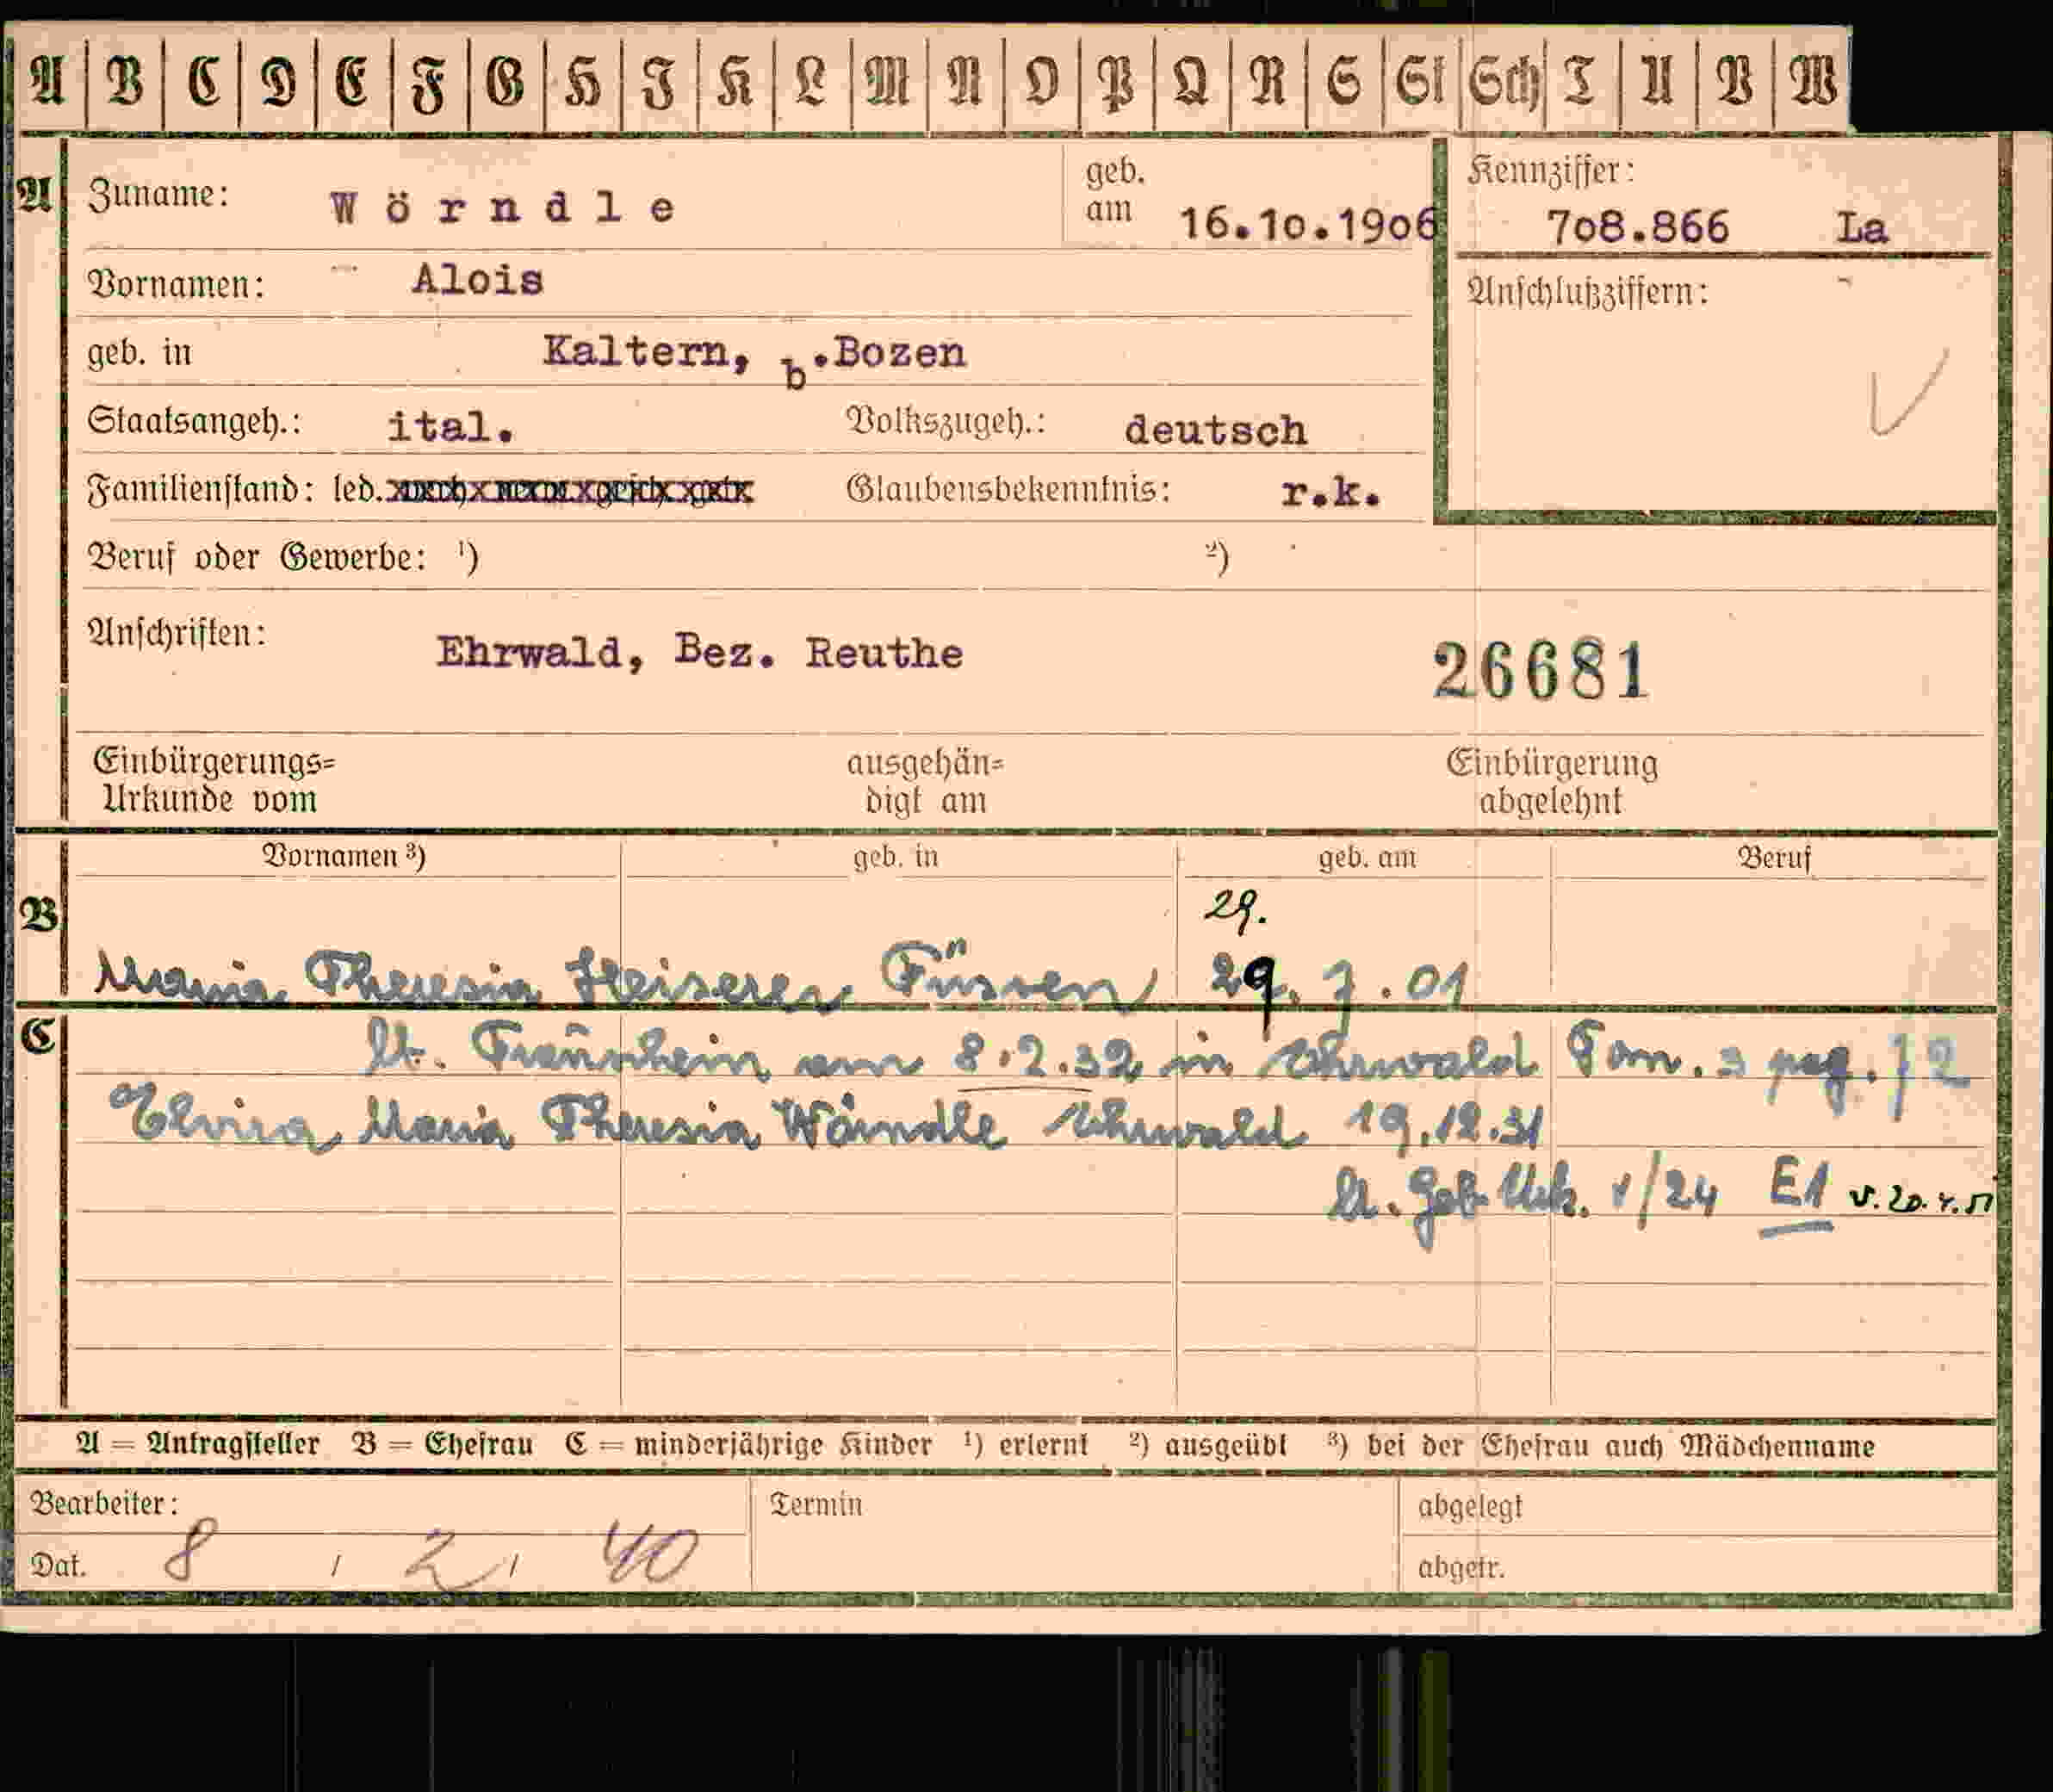 A B C D E F G H I K L M N O P Q R S St Sch T U V W
A Zuname: Wörndle geb. am 16.10.1906 Kennziffer: 708.866 La
Vornamen: Alois Anschlußziffern:
geb. in Kaltern, b.Bozen
Staatsangeh.: ital. Volkszugeh.: deutsch
Familienstand: led. Glaubensbekenntnis: r.k.
Beruf oder Gewerbe: ¹) ²)
Anschriften: Ehrwald, Bez. Reuthe 26681
Einbürgerungs= ausgehän= Einbürgerung
Urkunde vom digt am abgelehnt
Vornamen ³) geb. in geb. am Beruf
B 29.
Maria Theresia Heiserer Füssen 29. 7. 01
C lt. Trauschein am 8.2.32 in Ehrwald Tom. 3 pag. 72
Elvira Maria Theresia Wörndle Ehrwald 19.12.31
lt. Geb. Urk. v/24 E1 v. 20.4.51
A = Antragsteller B = Ehefrau C = minderjährige Kinder ¹) erlernt ²) ausgeübt ³) bei der Ehefrau auch Mädchenname
Bearbeiter: Termin abgelegt
Dat. 8 / 2 / 40 abgetr.